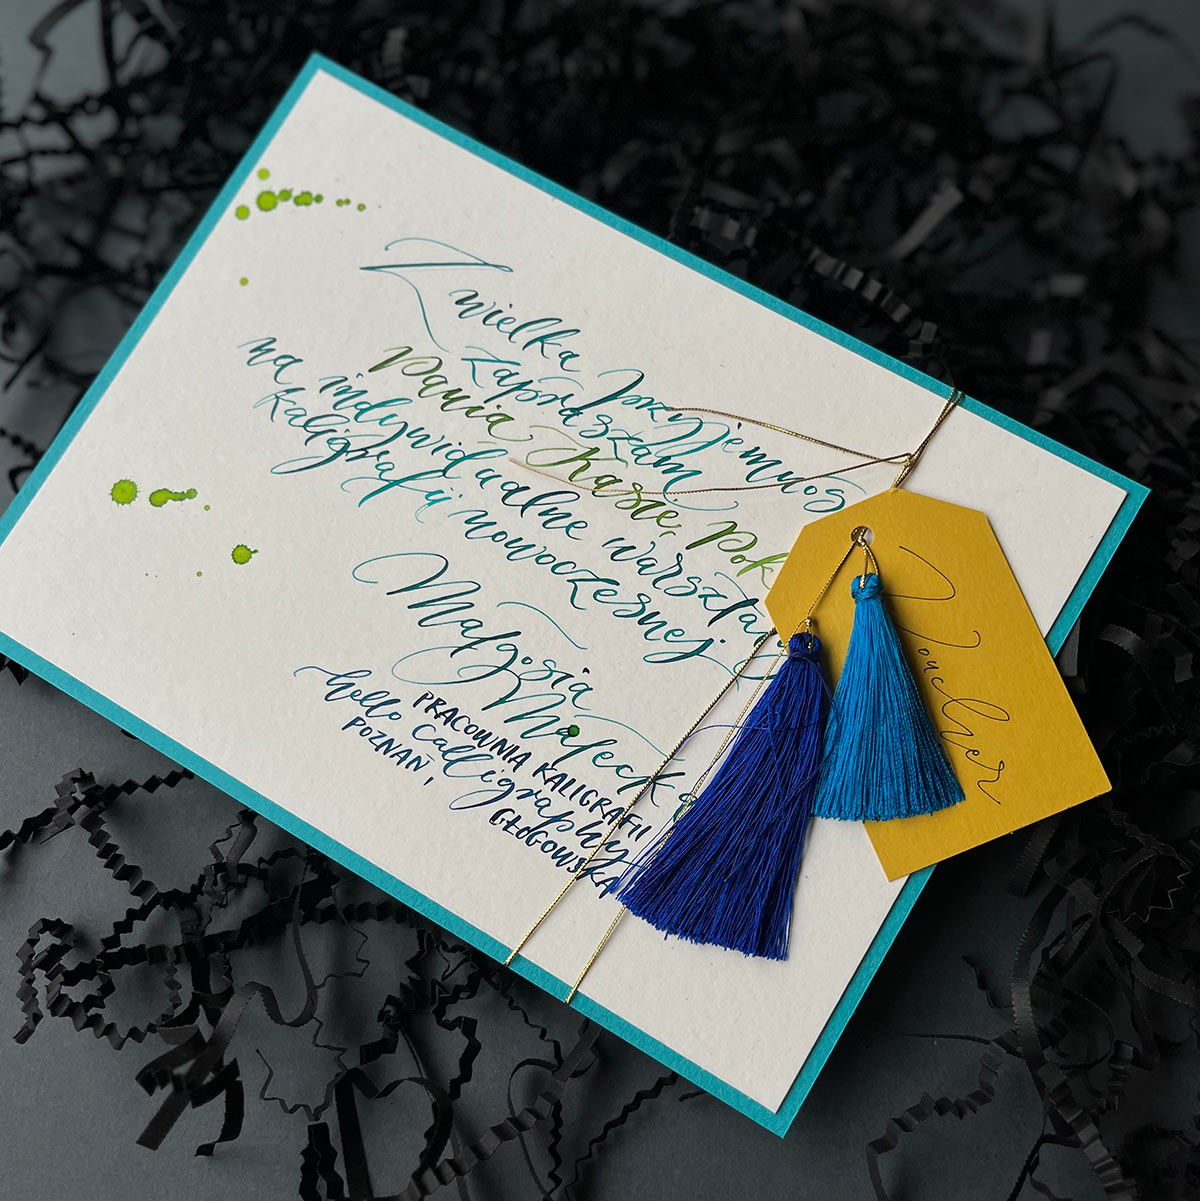 Z wielką przyjemnoś
zapraszam
Panią Kasię, Pok
na indywidualne warszta
kaligrafii nowoczesnej
Małgosia
Małeck
PRACOWNIA KALIGRAFII
hello calligraphy
POZNAŃ, GŁOGOWSKA
Voucher